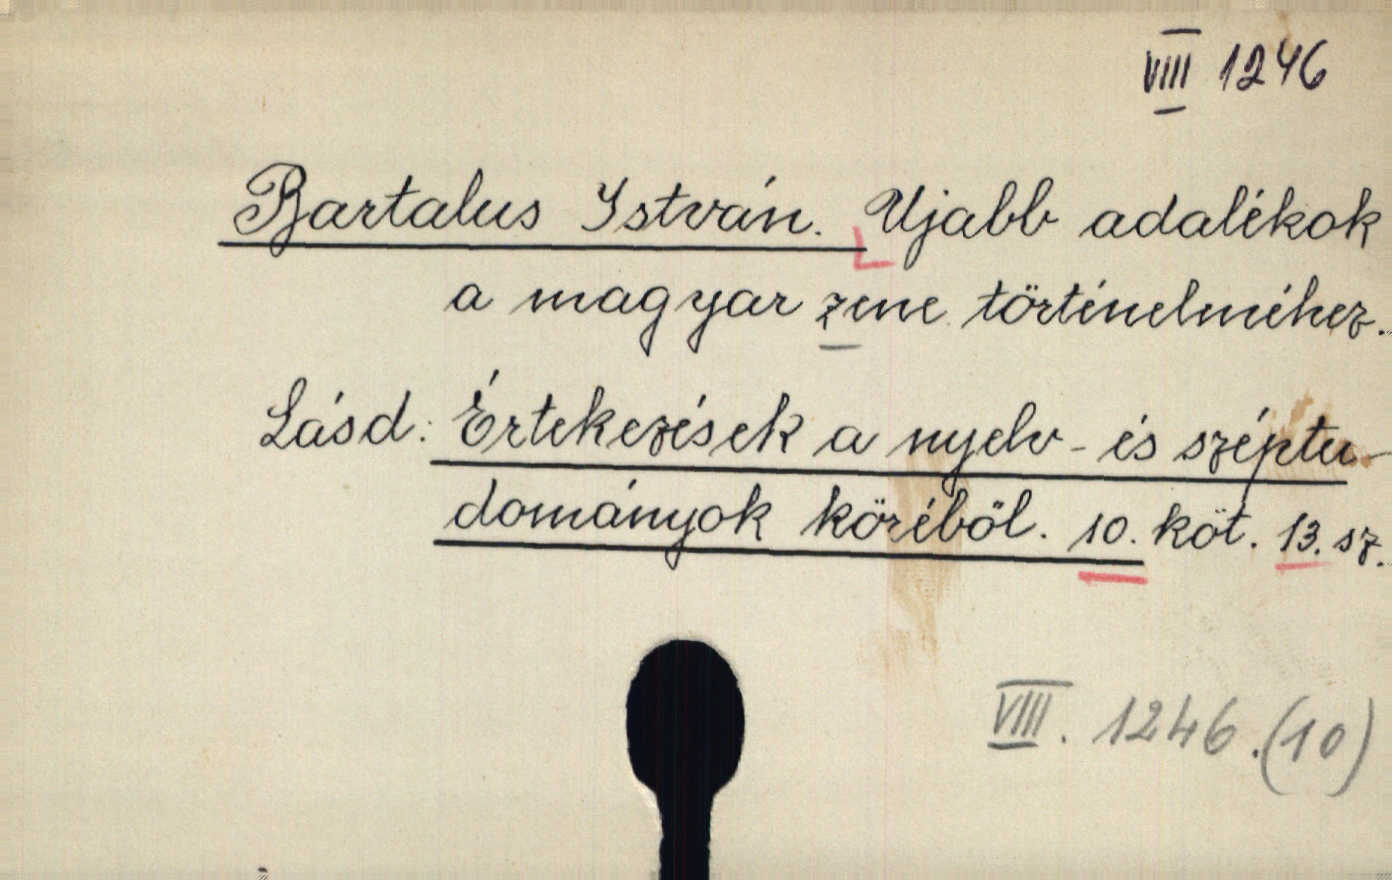 VIII 1246
Bartalus István. Ujabb adalékok
a magyar zene történelméhez.
Lásd: Értekezések a nyelv- és széptu-
dományok köréből. 10. köt. 13. sz.
VIII. 1246.(10)